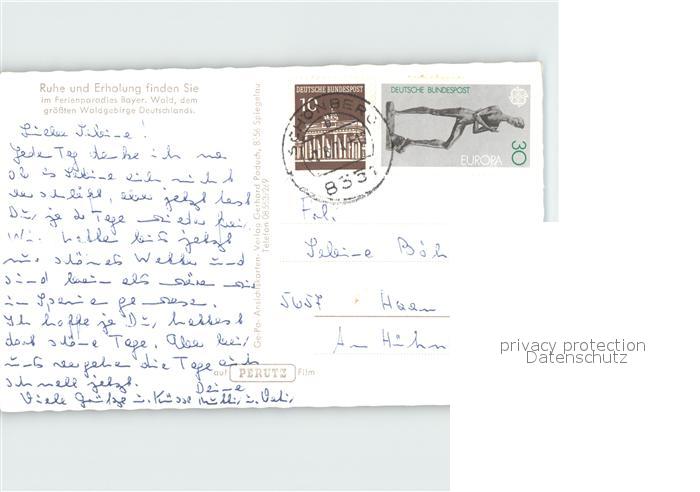 Ruhe und Erholung finden Sie
im Ferienparadies Bayer. Wald, dem
größten Waldgebirge Deutschlands.
Liebe Sabine!
Jeden Tag denke ich
ob Sabine sich nicht
verschläft, aber jetzt hast
Du, ja 2 Tage wieder frei.
Wir hatten bis jetzt
nur schönes Wetter und
sind braun als wären wir
in Spanien gewesen.
Ich hoffe ja Du, hattest
dort schöne Tage. Aber bei
uns vergehen die Tage auch
schnell jetzt. Deine
Viele Grüße u. Küsse Mutti u. Vati,
Ge-Pa-Ansichtskarten-Verlag Gerhard Paduch, 8356 Spiegelau
Telefon 08553/2/9
auf PERUTZ Film
DEUTSCHE BUNDESPOST
10
SCHÖNBERG
8351
DEUTSCHE BUNDESPOST
EUROPA
30
Frl.
Sabine Böh
5657 Haan
Am Hühn
privacy protection
Datenschutz